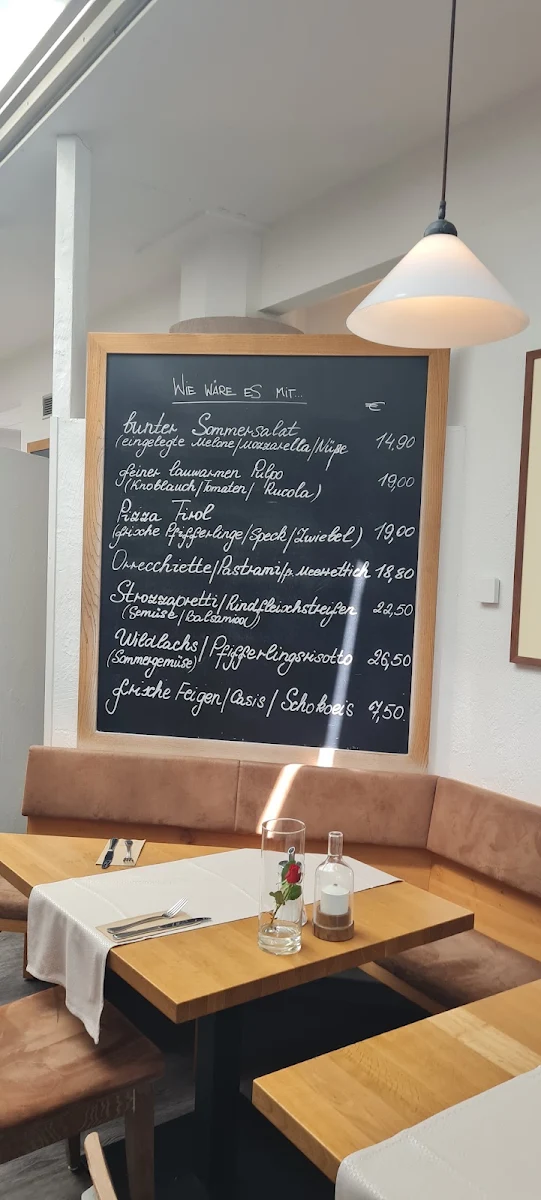 WIE WÄRE ES MIT...
€
bunter Sommersalat
(eingelegte Melone/Mozzarella/Nüße 14,90
feiner lauwarmen Pulpo
(Knoblauch/Tomaten/Rucola) 19,00
Pizza Tirol
(frische Pfifferlinge/Speck/Zwiebel) 19,00
Orrecchiette/Pastrami/p.Meerrettich 18,80
Strozzapretti/Rindfleischstreifen 22,50
(Gemüse/Balsamico)
Wildlachs/Pfifferlingsrisotto 26,50
(Sommergemüse)
frische Feigen/Casis/Schokoeis 7,50